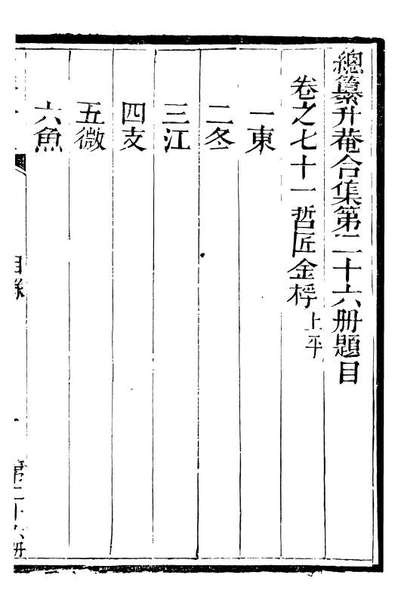 總纂升菴合集第二十六册題目
卷之七十一哲匠金桴上平
一東
二冬
三江
四支
五微
六魚
目錄
第二十六册